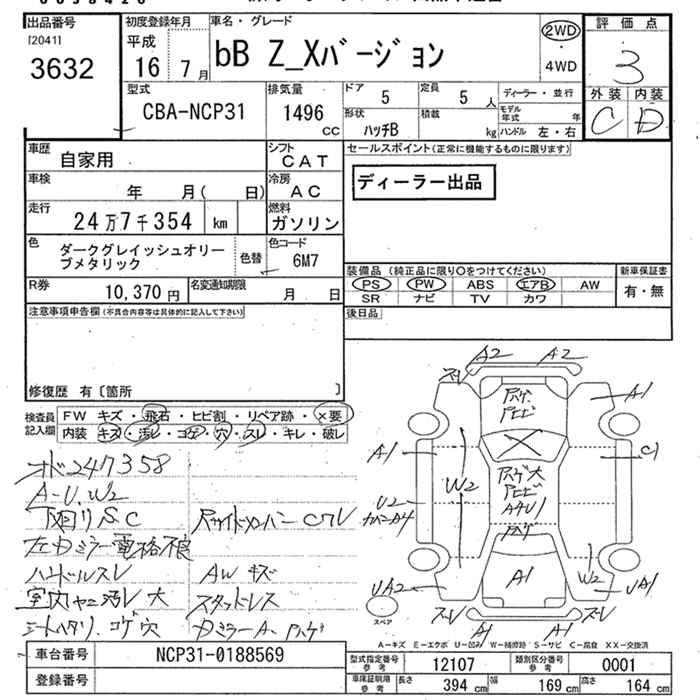 出品番号
[2041]
3632
初度登録年月
平成
16 7月
車名・グレード
bB Z_Xバージョン
2WD
・
4WD
評価点
3
外装 内装
C D
型式
CBA-NCP31
排気量
1496
CC
ドア
5
定員
5 人
形状
ハッチB
積載
kg
ディーラー・並行
モデル年式 年
ハンドル 左・右
車歴
自家用
シフト
CAT
車検
年 月( 日)
冷房
AC
走行
24万7千354 km
燃料
ガソリン
色
ダークグレイッシュオリー
ブメタリック
色替
色コード
6M7
R券
10,370 円
名変通知期限
月 日
セールスポイント(正常に機能するものに限ります)
ディーラー出品
装備品 (純正品に限り○をつけてください)
PS PW ABS エアB AW
SR ナビ TV カワ
新車保証書
有・無
後日品
注意事項申告欄(不具合内容等は具体的に記入して下さい)
修復歴 有〔箇所 〕
検査員
記入欄
FW キズ・飛石・ヒビ割・リペア跡・×要
内装 キズ・汚レ・コゲ・穴・スレ・キレ・破レ
オド247358
A-U.W2
下回りSC
左カミラー電格不良
ハンドルスレ
AW キズ
室内ヤニ汚レ大
スタッドレス
シートヘタリ.コゲ穴
A2 A2
スレ
A1
A1
C1
W2
U2
A1
W2
UA2
UA1
スレ
スレ
A1
A1
スペア
A-キズ E-エクボ U-凹ミ W-補修跡 S-サビ C-腐食 XX-交換済
車台番号
NCP31-0188569
登録番号
型式指定番号
参考
12107
類別区分番号
参考
0001
車庫証明用
参考
長さ 394 cm
幅 169 cm
高さ 164 cm